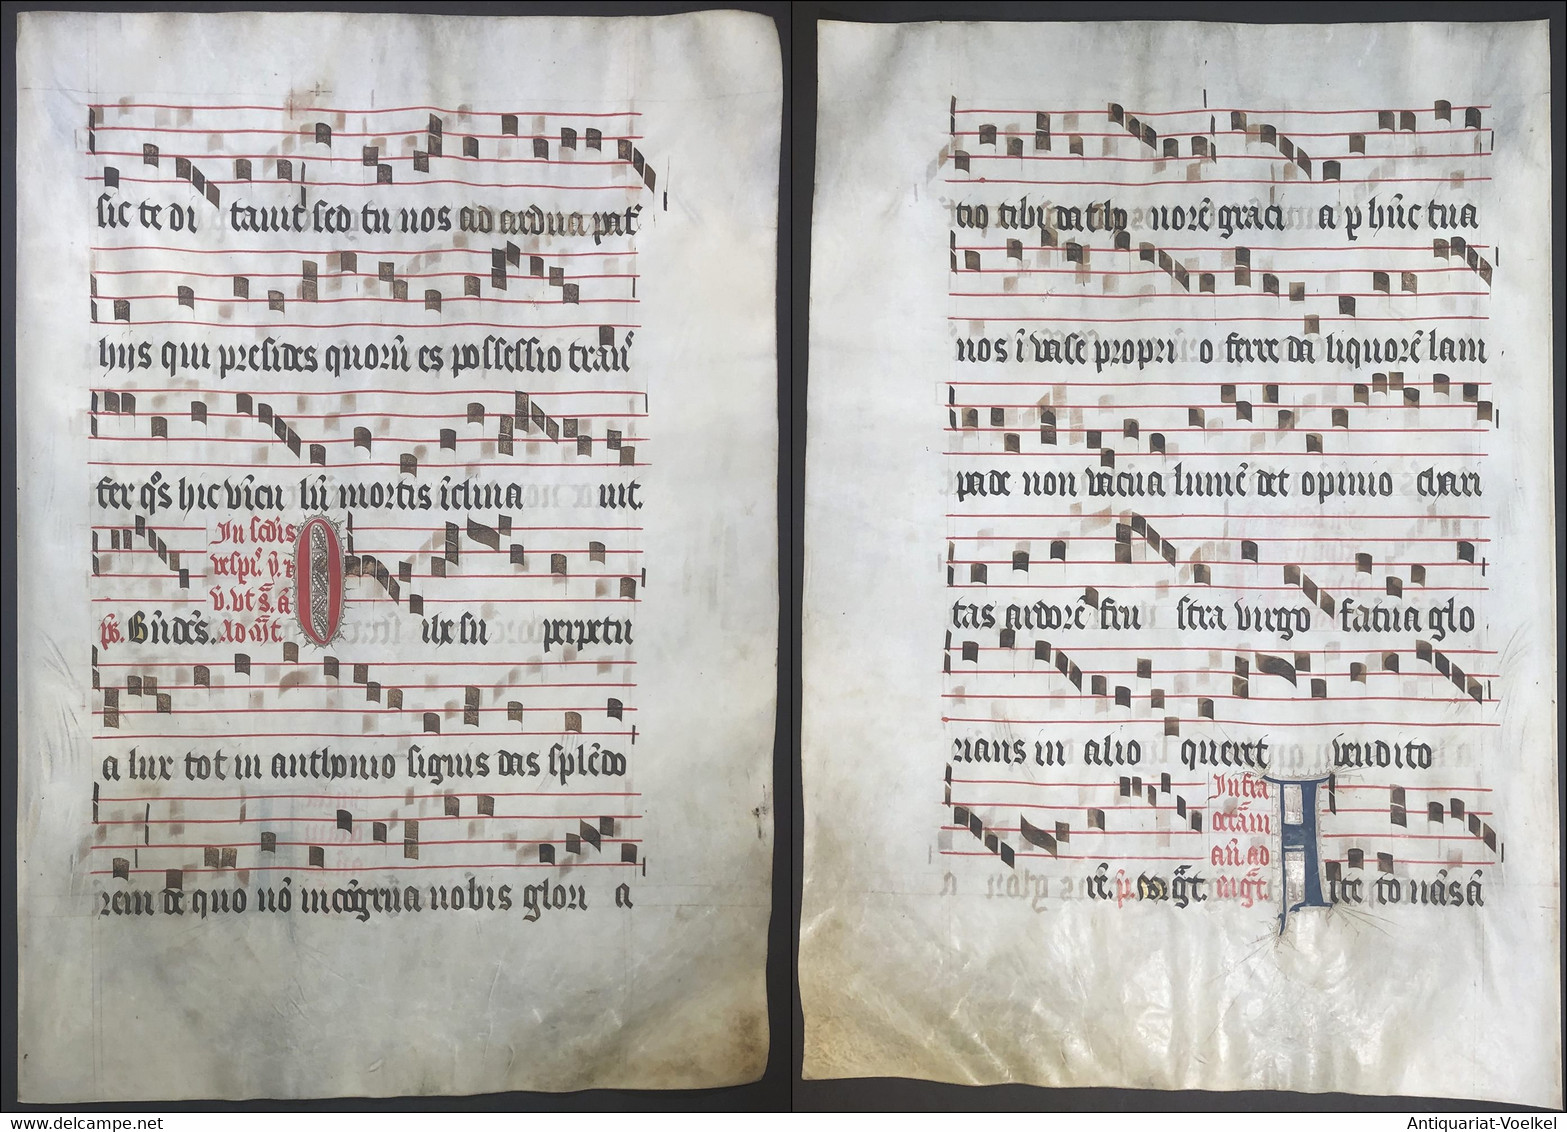 sic te di tavit sed tu nos ad ardua patͥ
hijs qui presides quorū es possessio trāsͥ
fer qͦs hic vīcu lū mortis īclina uit.
In scd̄is
vespīs. v̄. r
v. vt s̄. ā
ps. Bn̄dc̄s. Ad mḡt. O ihesu perpetu
a lux tot in anthonio signis das splēdo
rem de quo nō incōgrua nobis glori a
tio tibi dat ho norē graci a p hūc tua
nos ī vase propri o ferre da liquorē lam
pade non vacua lumē det opinio chari
tas ardorē fru stra virgo fatua glo
rians in alio queret vendito
Infra
octām
an̄. ad
rē. ps. mḡt. mḡt. Alte tonās ā
Antiquariat-Voelkel